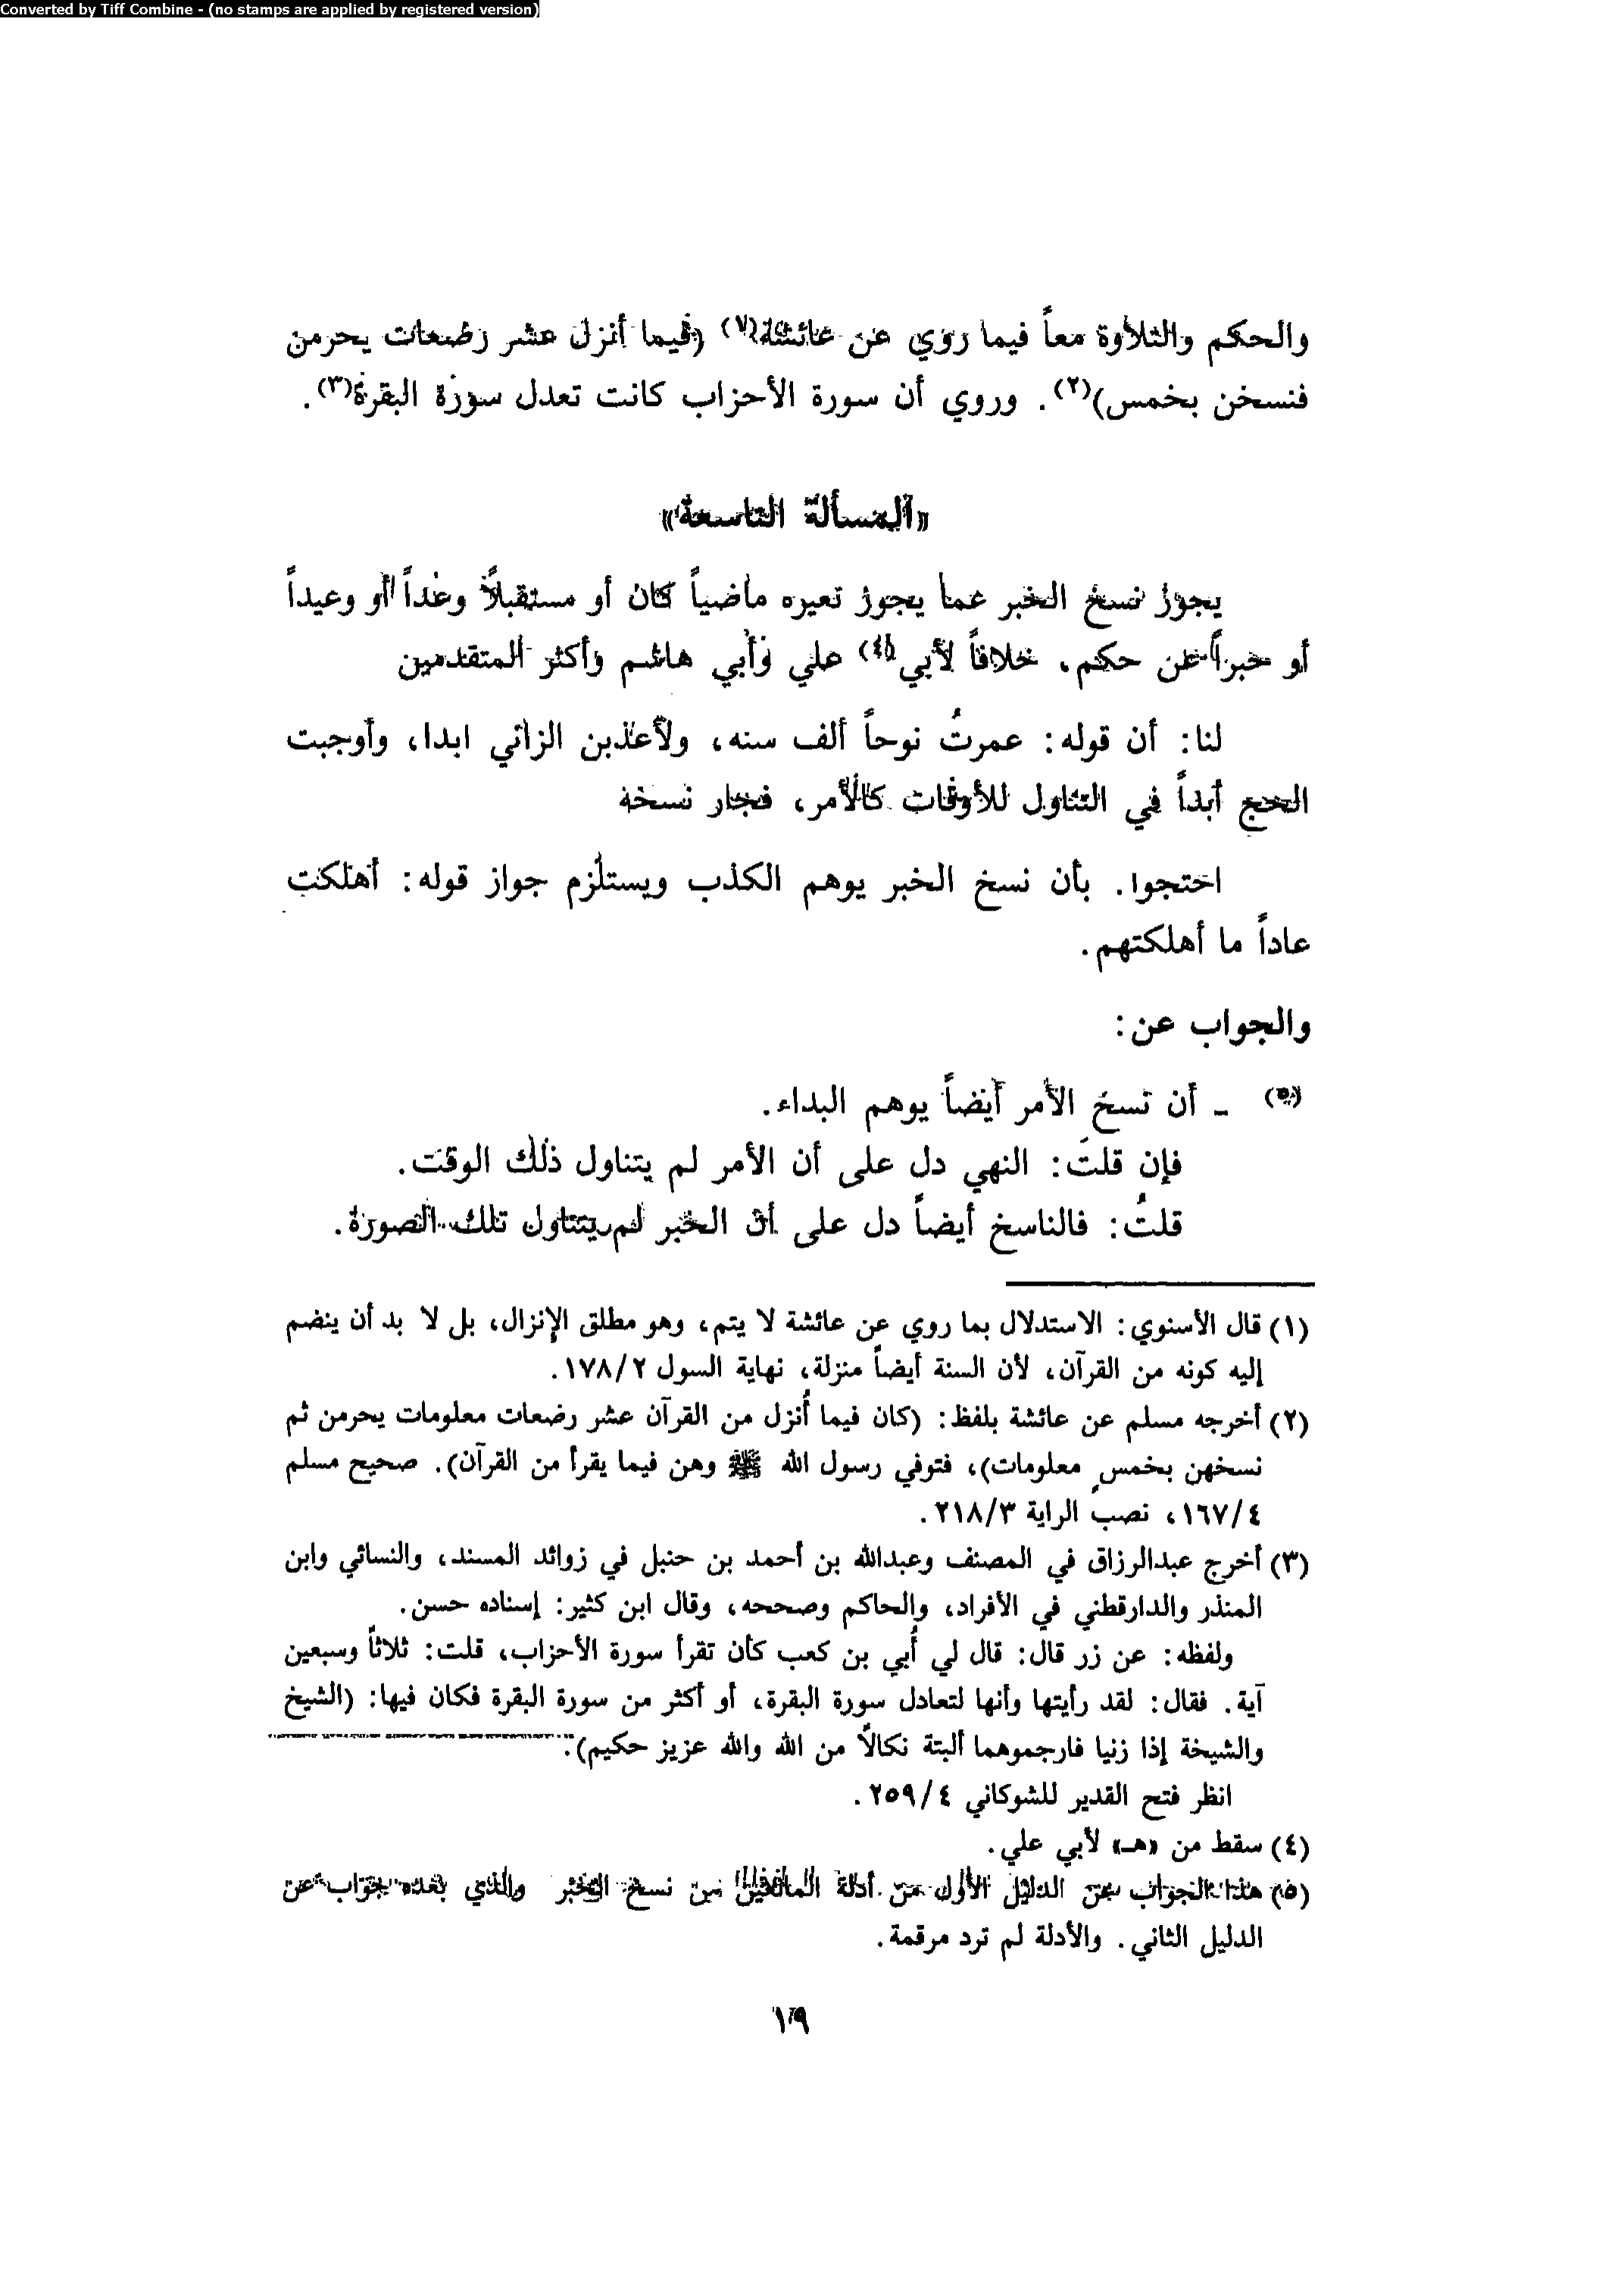 Converted by Tiff Combine - (no stamps are applied by registered version)
والحكم والتلاوة معاً فيما روي عن عائشة(١) (فيما أنزل عشر رضعات يحرمن
فنسخن بخمس)(٢). وروي أن سورة الأحزاب كانت تعدل سورة البقرة(٣).
«المسألة التاسعة»
يجوز نسخ الخبر عما يجوز تعيره ماضياً كان أو مستقبلاً وعداً أو وعيداً
أو خبراً عن حكم، خلافاً لأبي(٤) علي وأبي هاشم وأكثر المتقدمين
لنا: أن قوله: عمرتُ نوحاً ألف سنه، ولأعذبن الزاني ابدا، وأوجبت
الحج أبداً في التناول للأوقات كالأمر، فجار نسخة
احتجوا. بأن نسخ الخبر يوهم الكذب ويستلزم جواز قوله: أهلكت
عاداً ما أهلكتهم.
والجواب عن:
(٥) ـ أن نسخ الأمر أيضاً يوهم البداء.
فإن قلتَ: النهي دل على أن الأمر لم يتناول ذلك الوقت.
قلتُ: فالناسخ أيضاً دل على أن الخبر لم يتناول تلك الصورة.
(١) قال الأسنوي: الاستدلال بما روي عن عائشة لا يتم، وهو مطلق الإنزال، بل لا بد أن ينضم
إليه كونه من القرآن، لأن السنة أيضاً منزلة، نهاية السول ١٧٨/٢.
(٢) أخرجه مسلم عن عائشة بلفظ: (كان فيما أُنزل من القرآن عشر رضعات معلومات يحرمن ثم
نسخهن بخمسٍ معلومات)، فتوفي رسول الله ﷺ وهن فيما يقرأ من القرآن). صحيح مسلم
١٦٧/٤، نصب الراية ٢١٨/٣.
(٣) أخرج عبدالرزاق في المصنف وعبدالله بن أحمد بن حنبل في زوائد المسند، والنسائي وابن
المنذر والدارقطني في الأفراد، والحاكم وصححه، وقال ابن كثير: إسناده حسن.
ولفظه: عن زر قال: قال لي أُبي بن كعب كأن تقرأ سورة الأحزاب، قلت: ثلاثاً وسبعين
آية. فقال: لقد رأيتها وأنها لتعادل سورة البقرة، أو أكثر من سورة البقرة فكان فيها: (الشيخ
والشيخة إذا زنيا فارجموهما ألبتة نكالاً من الله والله عزيز حكيم).
انظر فتح القدير للشوكاني ٢٥٩/٤.
(٤) سقط من «هـ» لأبي علي.
(٥) هذا الجواب عن الدليل الأول من أدلة المانعين من نسخ الخبر والذي بعده جواب عن
الدليل الثاني. والأدلة لم ترد مرقمة.
١٩